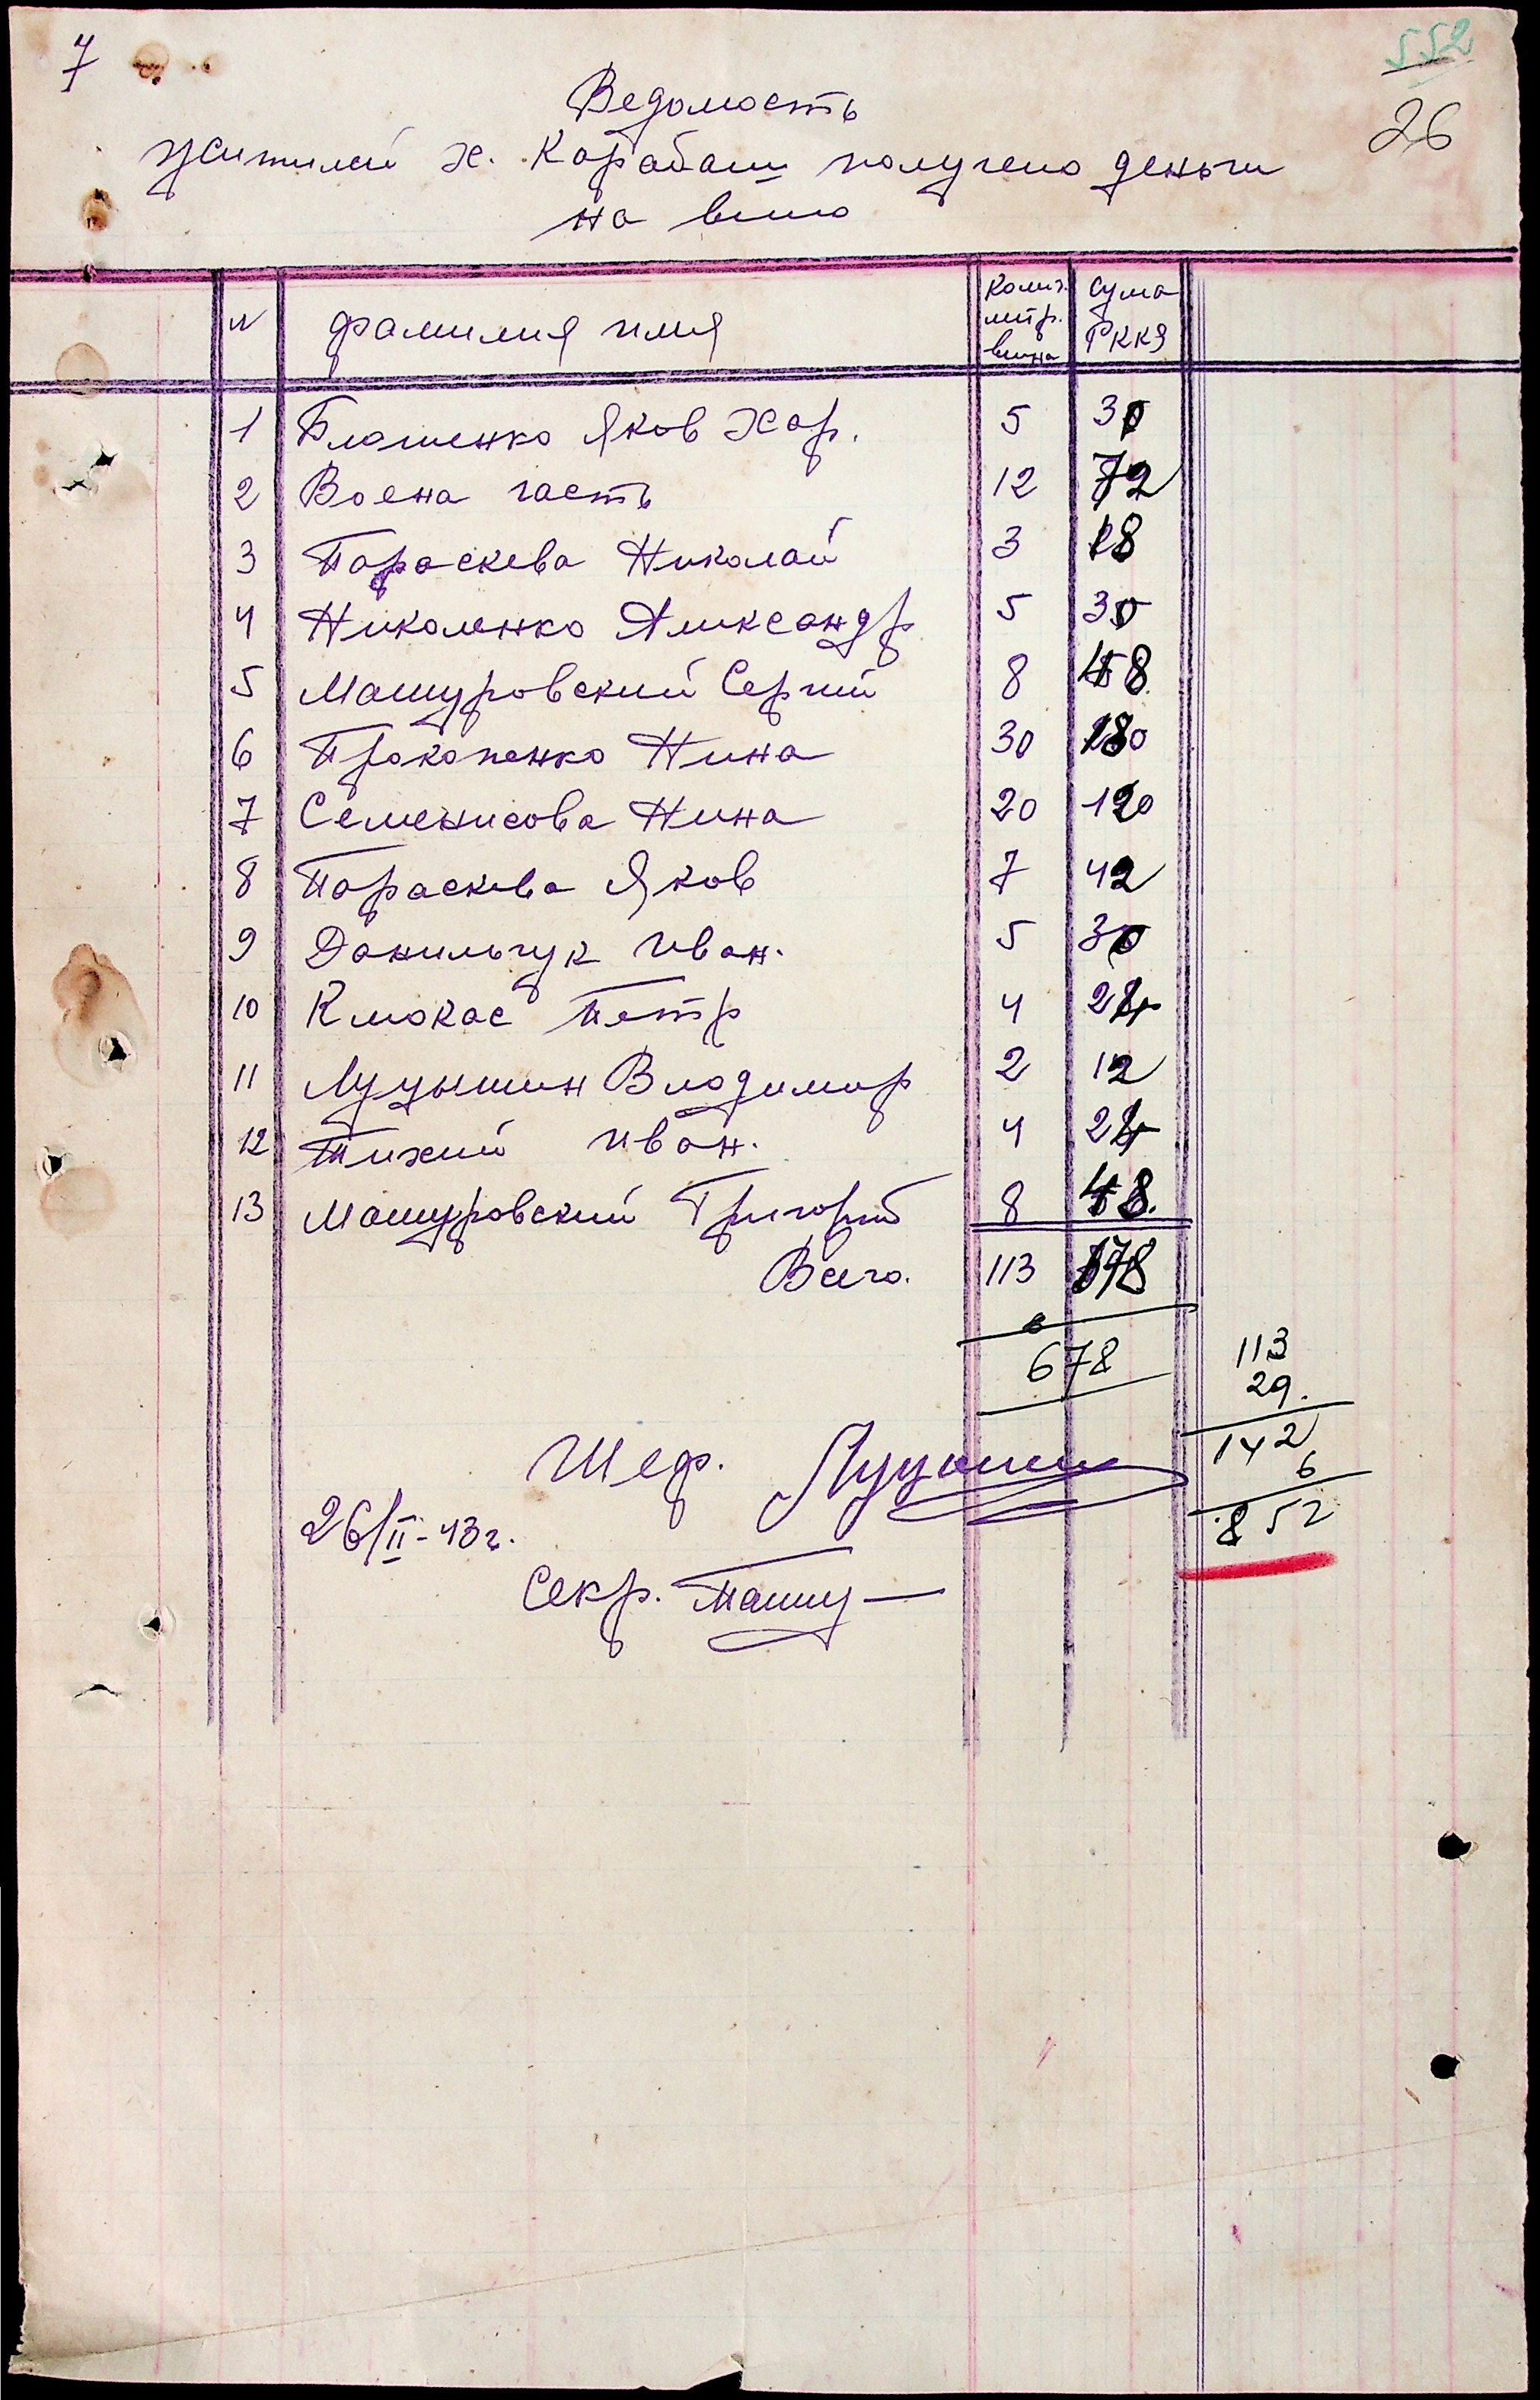 7
552
26
Ведомость
жителей х. Карабаш получено деньги
на вино
№ фамилия имя Колич. литр. вина Сума РККЯ
1 Блошенко Яков Хар. 5 30
2 Воена часть 12 72
3 Параскева Николай 3 18
4 Николенко Александр 5 30
5 Машуровский Сергий 8 48
6 Прокопенко Нина 30 180
7 Семенисова Нина 20 120
8 Параскева Яков 7 42
9 Данильчук Иван. 5 30
10 Клюкас Петр 4 24
11 Луцышин Владимир 2 12
12 Тихий Иван. 4 24
13 Машуровский Григорий 8 48.
Всего. 113 678
6
678
113
29.
142
6
852
Шеф. Луцышин
26/II-43 г.
Секр.